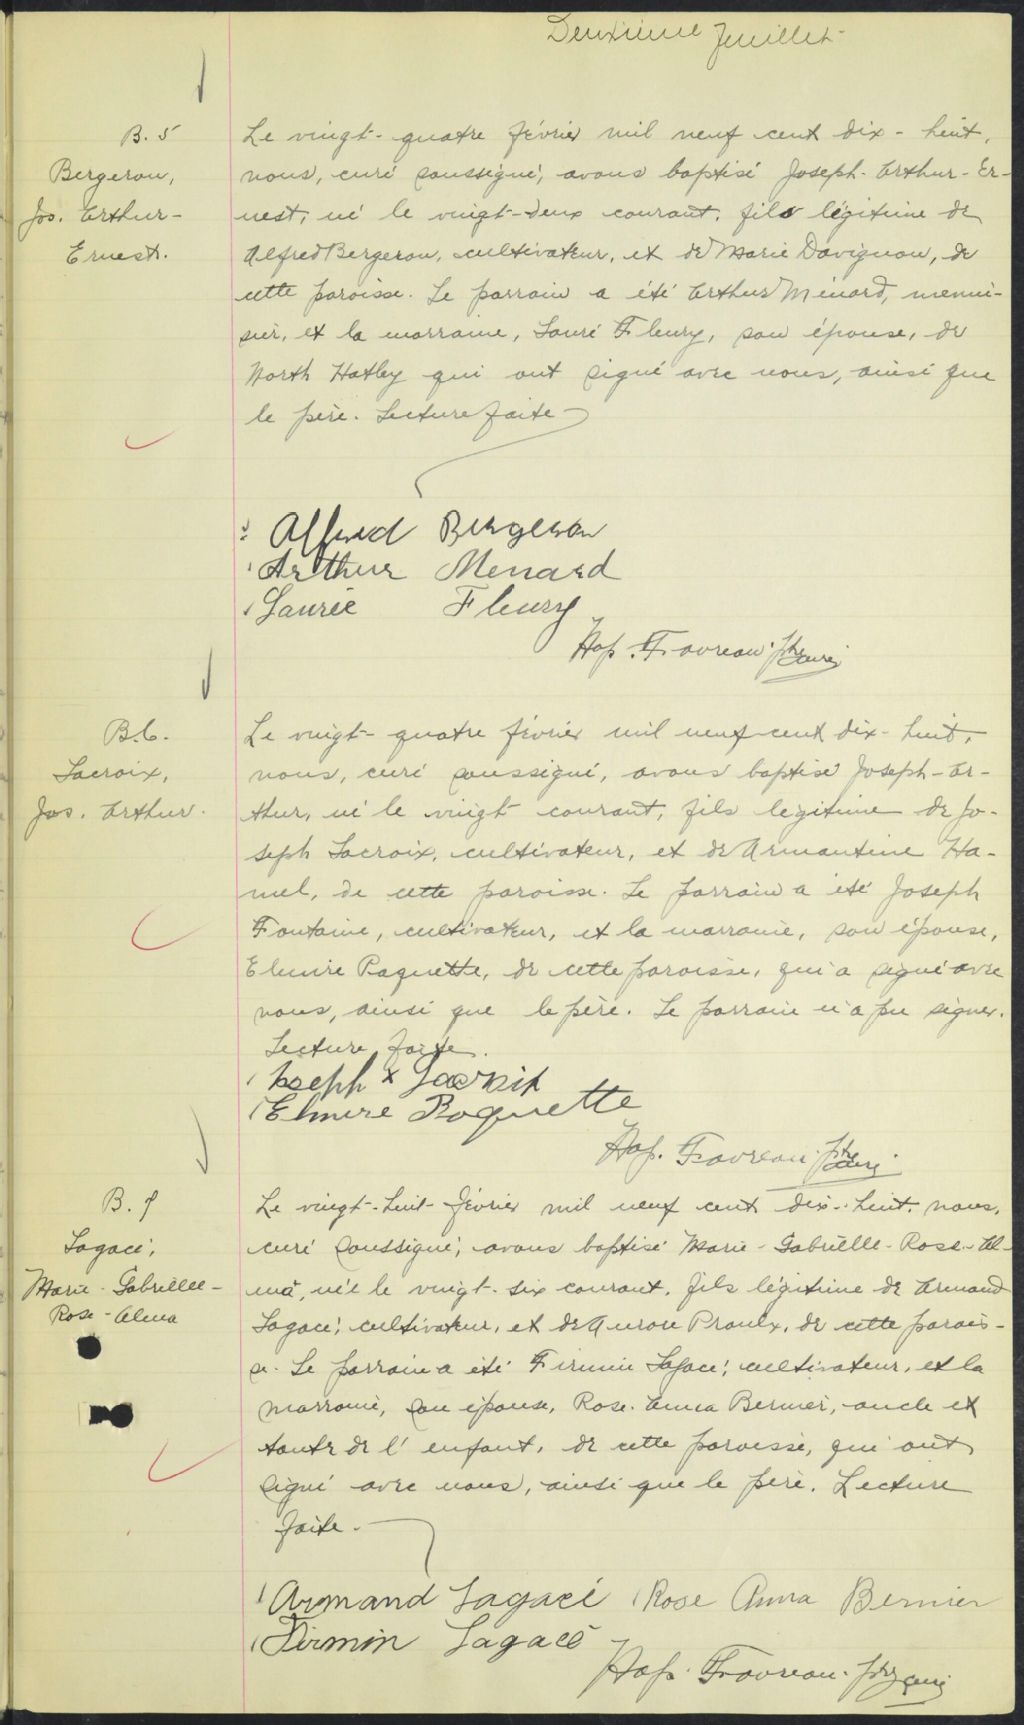 Deuxième feuillet
B. 5
Bergeron,
Jos. Arthur-
Ernest.
Le vingt-quatre février mil neuf cent dix-huit,
nous, curé soussigné, avons baptisé Joseph-Arthur-Er-
nest, né le vingt-deux courant, fils légitime de
Alfred Bergeron, cultivateur, et de Marie Davignon, de
cette paroisse. Le parrain a été Arthur Ménard, menui-
sier, et la marraine, Lauré Fleury, son épouse, de
North Hatley qui ont signé avec nous, ainsi que
le père. Lecture faite
Alfred Bergeron
Arthur Menard
Laurée Fleury
Hop. Favreau, ptre curé
B.6.
Lacroix,
Jos. Arthur.
Le vingt-quatre février mil neuf cent dix-huit,
nous, curé soussigné, avons baptisé Joseph-Ar-
thur, né le vingt courant, fils légitime de Jo-
seph Lacroix, cultivateur, et de Armantine Ha-
mel, de cette paroisse. Le parrain a été Joseph
Fontaine, cultivateur, et la marraine, son épouse,
Elmire Paquette, de cette paroisse, qui a signé avec
nous, ainsi que le père. Le parrain n'a pu signer.
Lecture faite.
Joseph x Lacroix
Elmire Paquette
Hop. Favreau, ptre curé
B. 7
Lagacé,
Marie-Gabrielle-
Rose-Alma
Le vingt-huit février mil neuf cent dix-huit, nous,
curé soussigné, avons baptisé Marie-Gabrielle-Rose-Al-
ma, née le vingt-six courant, fils légitime de Armand
Lagacé, cultivateur, et de Aurore Proulx, de cette parois-
se. Le parrain a été Firmin Lagacé, cultivateur, et la
marraine, son épouse, Rose-Anna Bernier, oncle et
tante de l'enfant, de cette paroisse, qui ont
signé avec nous, ainsi que le père. Lecture
faite.
Armand Lagacé Rose Anna Bernier
Firmin Lagacé
Hop. Favreau, ptre curé